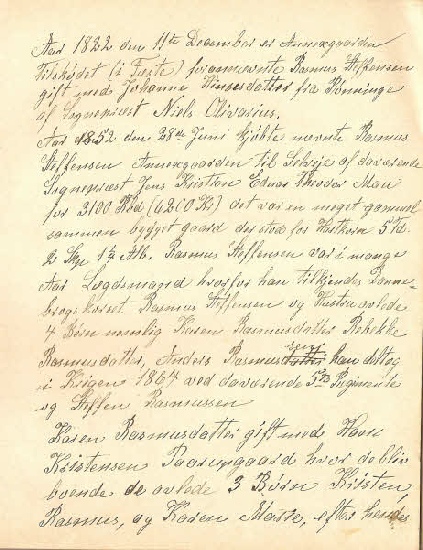 Aar 1822 den 11te December er Annexgaarden
Tilskjödet (i Fæste) fornævnte Rasmus Steffensen
gift med Johanne Hansdatter fra
af Sognepræst Niels Olivarius.
Aar 1852 den 28de Juni kjöbte nævnte Rasmus
Steffensen Annexgaarden til Selveje af daværende
Sognepræst Jens Kristian Edvar Theodor Mau
for 3100 Rbd (6200 Kr) det var en meget gammel
sammen bygget gaard der stod for Hartkorn 5 Td.
2 Skp 1½ Alb. Rasmus Steffensen var i mange
Aar Sogdsmand hvorfor han tilkjendes Danne-
brogskorset. Rasmus Steffensen og Hustru avlede
4 Börn nemlig Karen Rasmusdatter Rebekke
Rasmusdatter, Anders Rasmussen han deltog
i Krigen 1864 ved daværende 5te Regimente
og Steffen Rasmussen
Karen Rasmusdatter gift med Hans
Kristensen Paarupgaard hvor de blev
boende de avlede 3 Börn Kirsten,
Rasmus, og Karen Marie, efter hendes